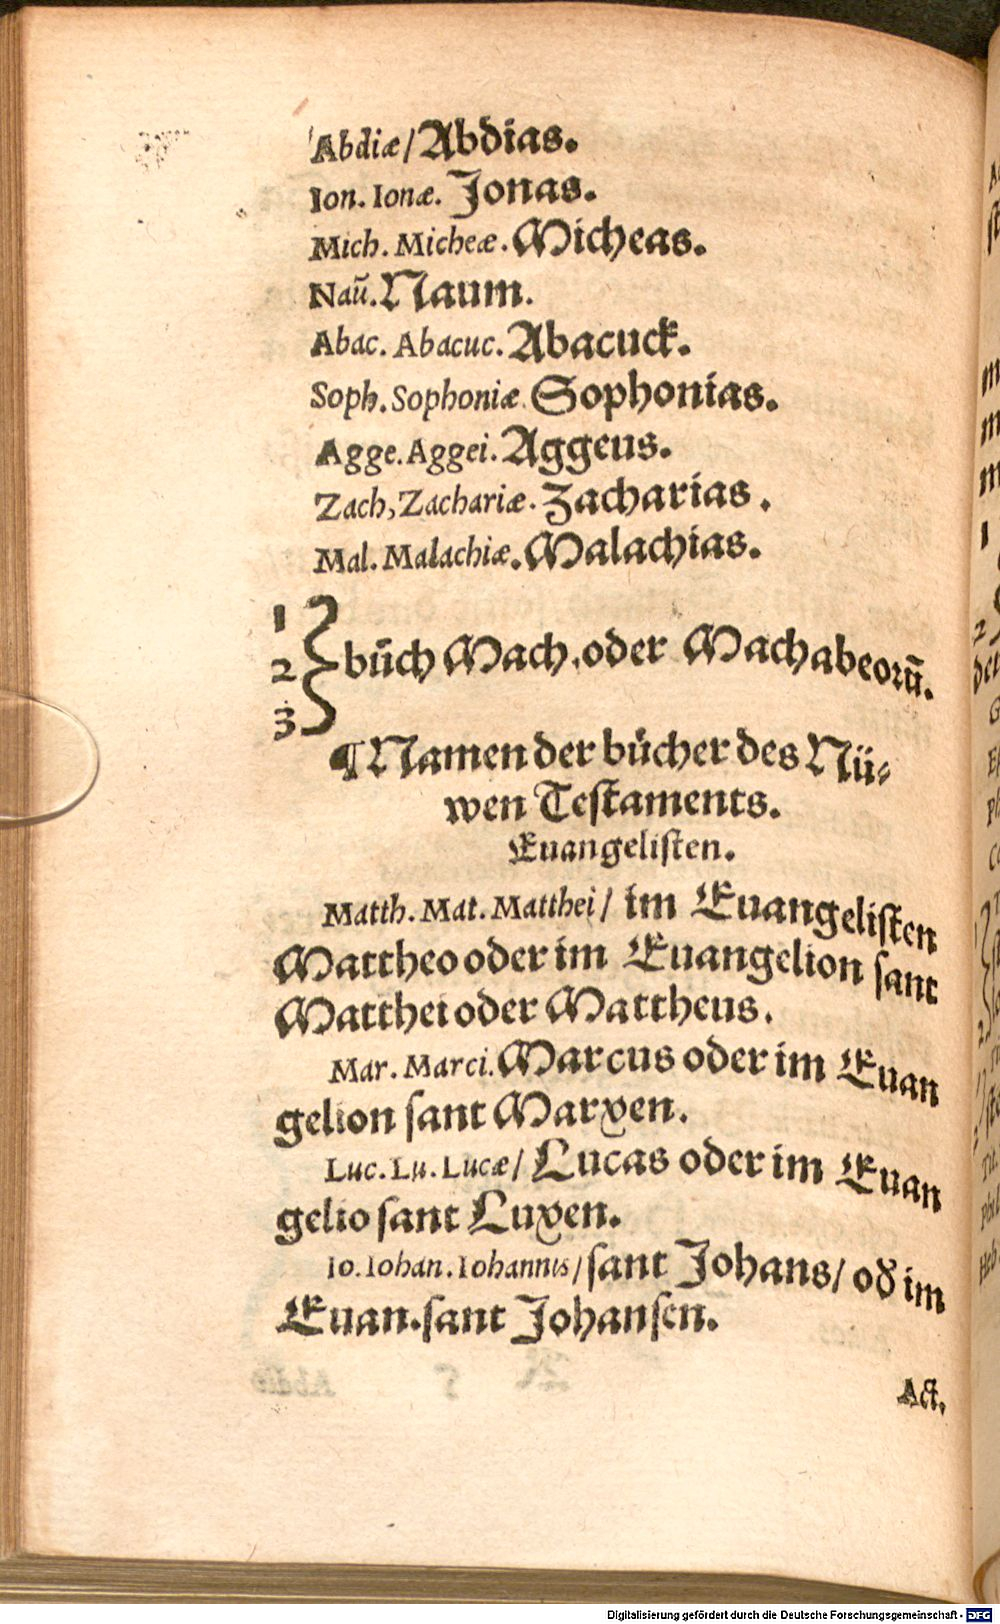 Abdiæ/ Abdias.
Ion. Ionæ. Jonas.
Mich. Micheæ. Micheas.
Naū. Naum.
Abac. Abacuc. Abacuck.
Soph. Sophoniæ. Sophonias.
Agge. Aggei. Aggeus.
Zach, Zachariæ. Zacharias.
Mal. Malachiæ. Malachias.
1
2 buͤch Mach. oder Machabeorū.
3
¶ Namen der buͤcher des Nü⸗
wen Testaments.
Euangelisten.
Matth. Mat. Matthei/ im Euangelisten
Mattheo oder im Euangelion sant
Matthei oder Mattheus.
Mar. Marci. Marcus oder im Euan
gelion sant Marxen.
Luc. Lu. Lucæ/ Lucas oder im Euan
gelio sant Luxen.
Io. Iohan. Iohannis/ sant Johans/ oď im
Euan. sant Johansen.
Act.
Digitalisierung gefördert durch die Deutsche Forschungsgemeinschaft - DFG